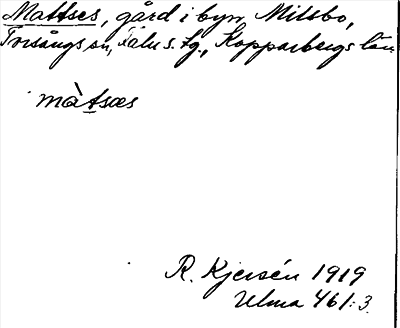 Mattses, gård i byn Milsbo,
Torsångs sn, Falu s. tg., Kopparbergs län
màtsæs
R. Kjersén 1919
Ulma 461:3.